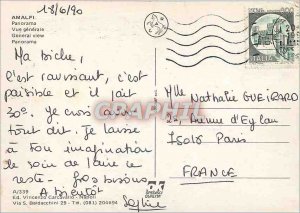 18/6/90
AMALFI
Panorama
Vue générale
General view
Panorama
ITALIA
Ma biche,
c'est ravissant, c'est
paisible et il fait
30°. Je crois avoir
tout dit. Je laisse
à ton imagination
le soin de faire le
reste. Gros bisous
A bientôt
Sophie
Mlle Nathalie GUEIRARD
23, Avenue d'Eylau
75016 Paris
FRANCE
CPARAMA
A/339
Ed. Vincenzo Carcavallo - Napoli
Via S. Baldacchini 29 - Tel. (081) 200694